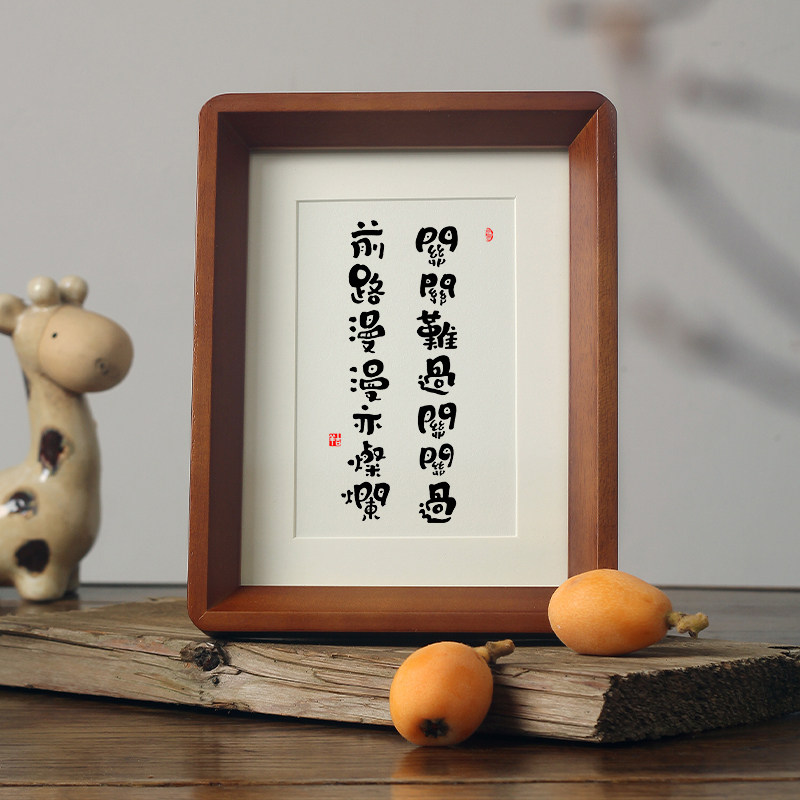 關關難過關關過
前路漫漫亦燦爛